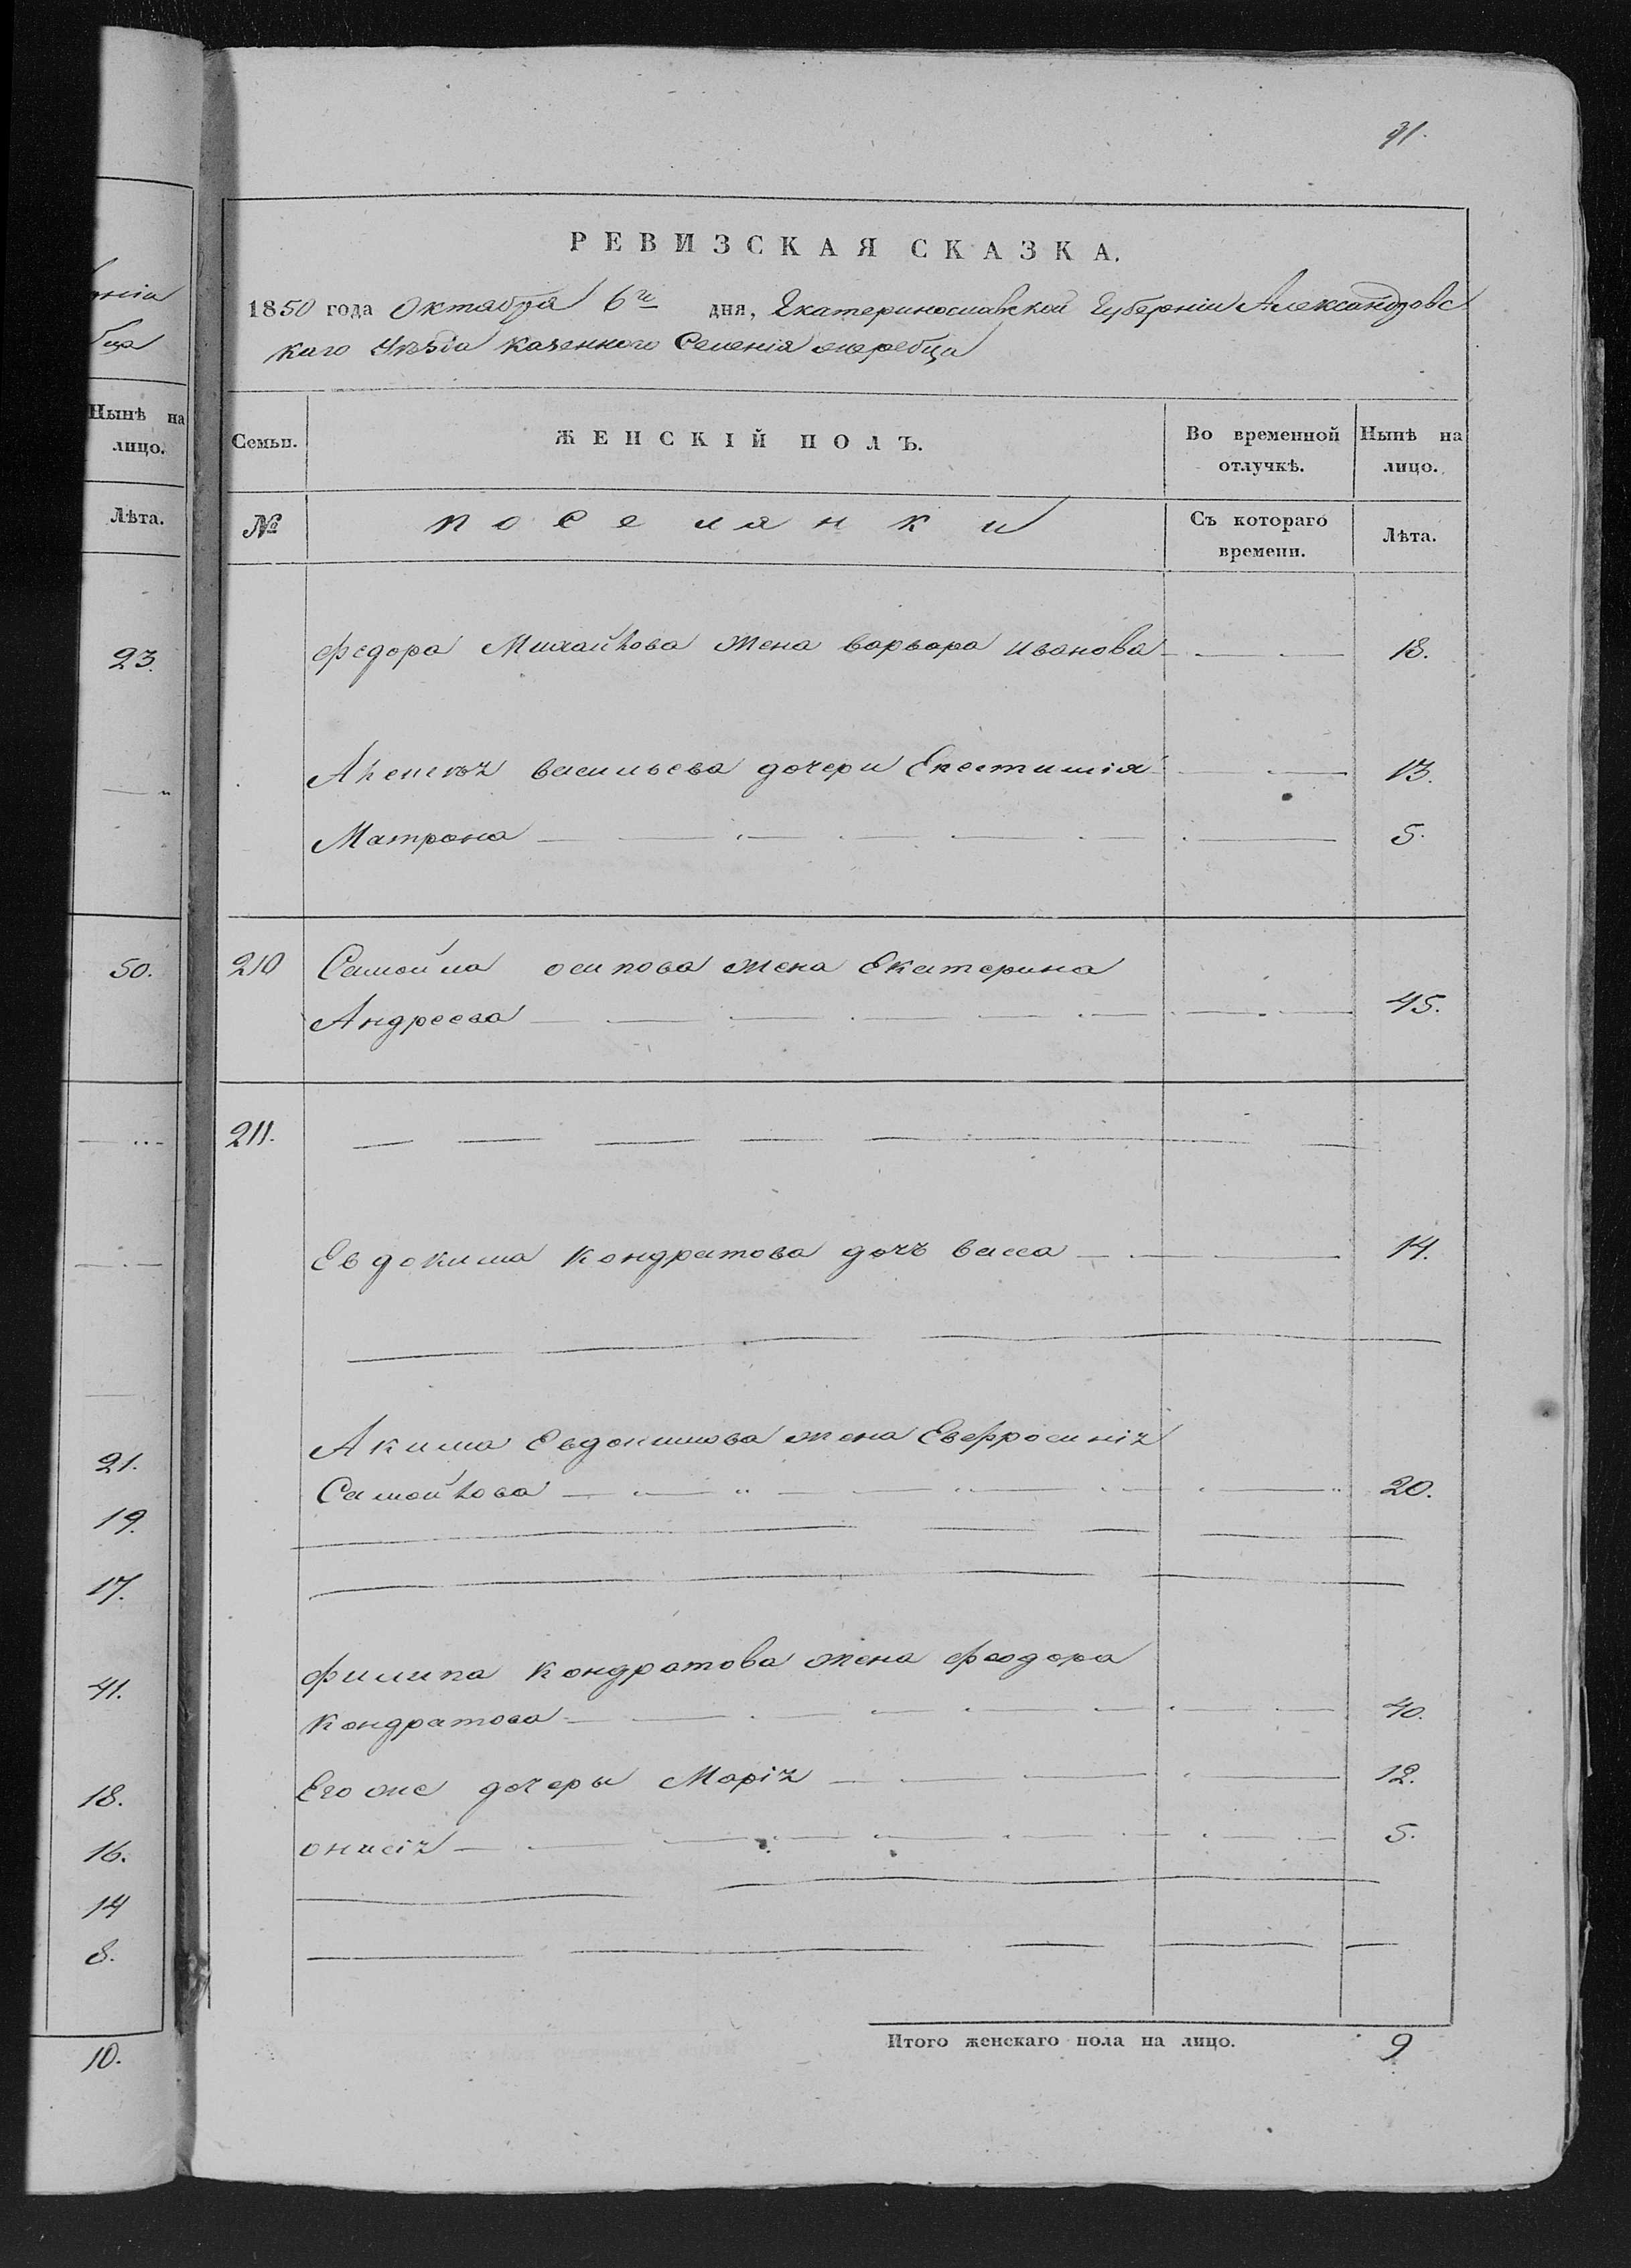 нія
ца
Нынѣ на
лицо.
Лѣта.
23.
50.
21.
19.
17.
41.
18.
16.
14
8.
10.
РЕВИЗСКАЯ СКАЗКА.
1850 года Октября 6го дня, Екатеринославской Губерніи Александровс
каго Уѣзда казенного Селенія жеребца
Семьи. ЖЕНСКІЙ ПОЛЪ. Во временной отлучкѣ. Нынѣ на лицо.
№ поселянки Съ котораго времени. Лѣта.
федора Михайлова жена варвара иванова 18.
васильева дочери 13.
Матрона 5.
210 Самойла осипова жена Екатерина
Андреева 45.
211.
Евдокима кондратова дочъ васса 14.
Акима Евдокимова жена Евфросинія
Самойлова 20.
филипа кондратова жена феодора
кондратова 40.
Его же дочеры Марія 12.
онисія 5.
Итого женскаго пола на лицо. 9